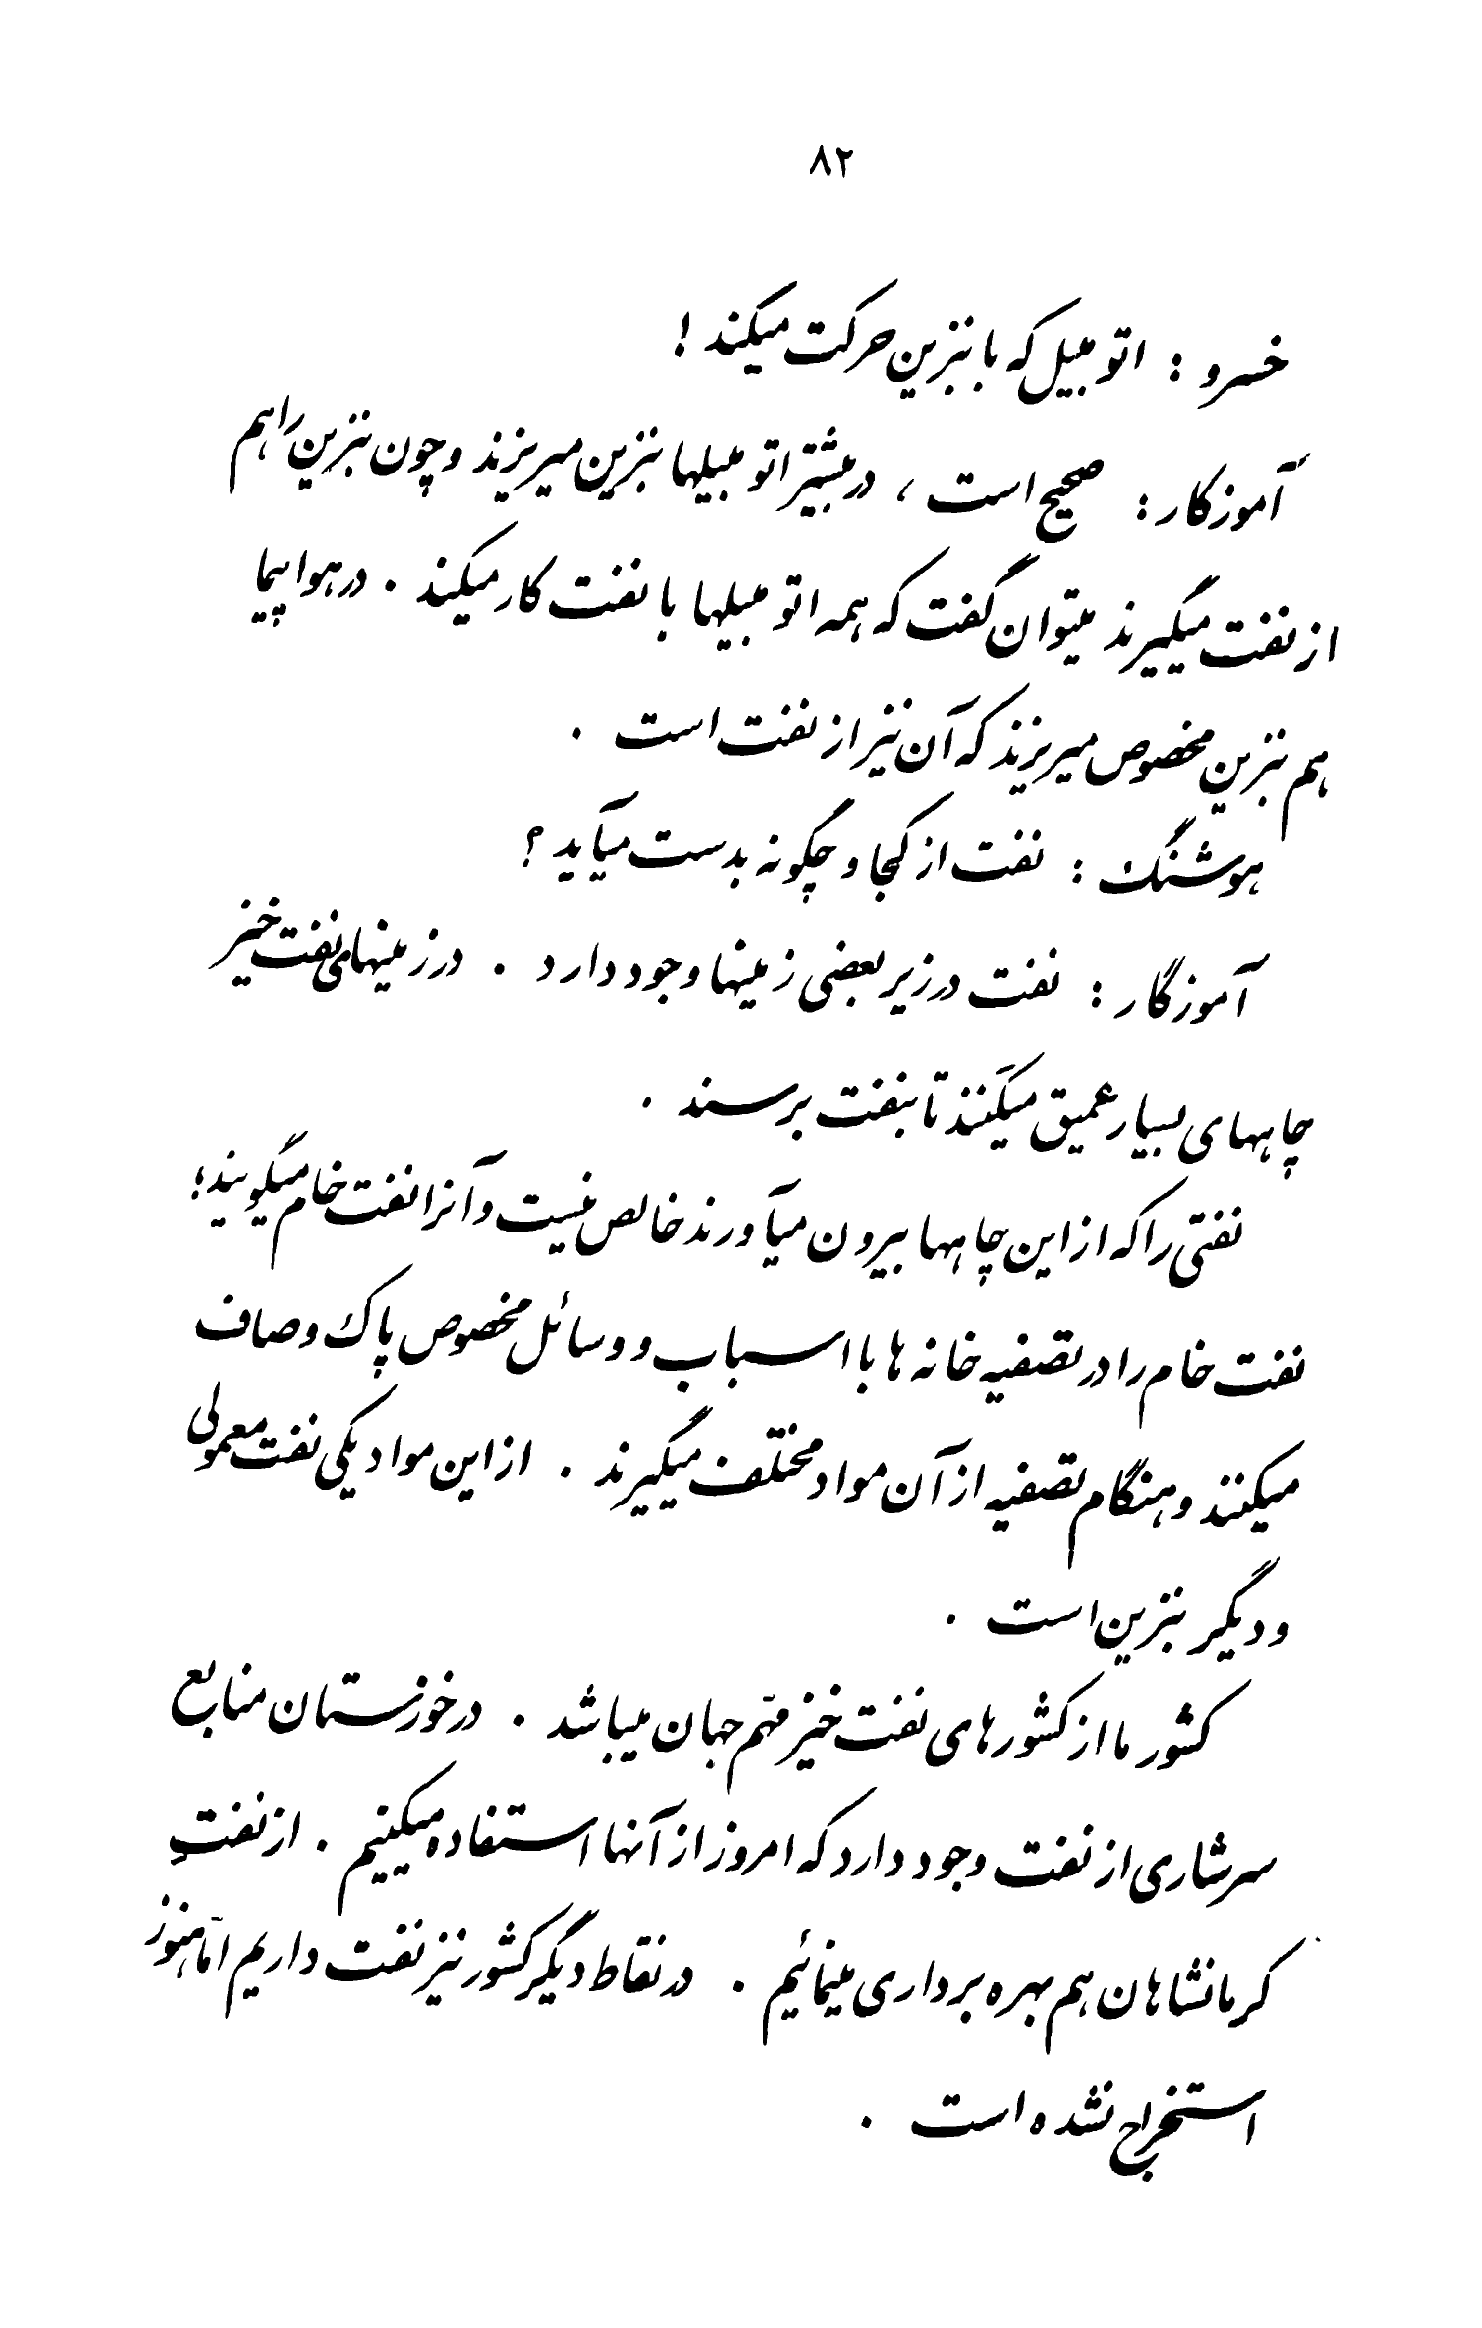 ۸۲
خسرو : اتومبیل که با بنزین حرکت میکند !
آموزگار : صحیح است ، در بیشتر اتومبیلها بنزین میریزند و چون بنزین را هم
از نفت میگیرند میتوان گفت که همه اتومبیلها با نفت کار میکند . در هواپیما
هم بنزین مخصوص میریزند که آن نیز از نفت است .
هوشنگ : نفت از کجا و چگونه بدست میآید ؟
آموزگار : نفت در زیر بعضی زمینها وجود دارد . در زمینهای نفت خیز
چاههای بسیار عمیق میکَنند تا بنفت برسند .
نفتی را که از این چاهها بیرون میآورند خالص نیست و آنرا نفت خام میگویند ؛
نفت خام را در تصفیه خانه ها با اسباب و وسائل مخصوص پاک و صاف
میکنند و هنگام تصفیه از آن مواد مختلف میگیرند . از این مواد یکی نفت معمولی
و دیگر بنزین است .
کشور ما از کشورهای نفت خیز مهّم جهان میباشد . در خوزستان منابع
سرشاری از نفت وجود دارد که امروز از آنها استفاده میکنیم . از نفتِ
کرمانشاهان هم بهره برداری مینمائیم . در نقاط دیگر کشور نیز نفت داریم امّا هنوز
استخراج نشده است .